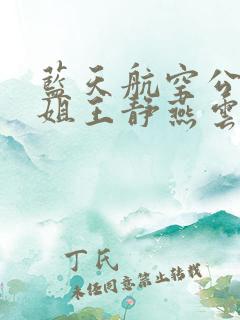 藍天航空公
姐王靜燕雲
丁氏
未經同意禁止轉載